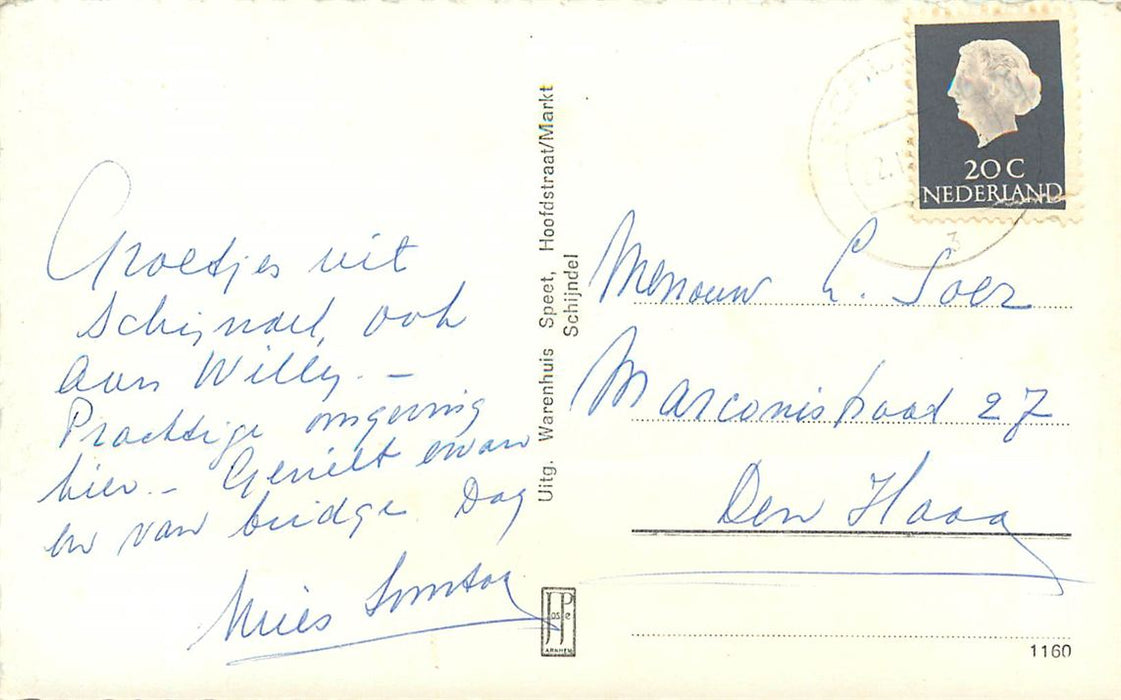 Groetjes uit
Schijndel, ook
aan Willy. —
Prachtige omgeving
hier. — Geniet ervan
en van bridge. Dag
Mies
Uitg. Warenhuis Speet, Hoofdstraat/Markt
Schijndel
JosPe
ARNHEM
20 C
NEDERLAND
3
Mevrouw L. Soer
Marconistraat 27
Den Haag
1160